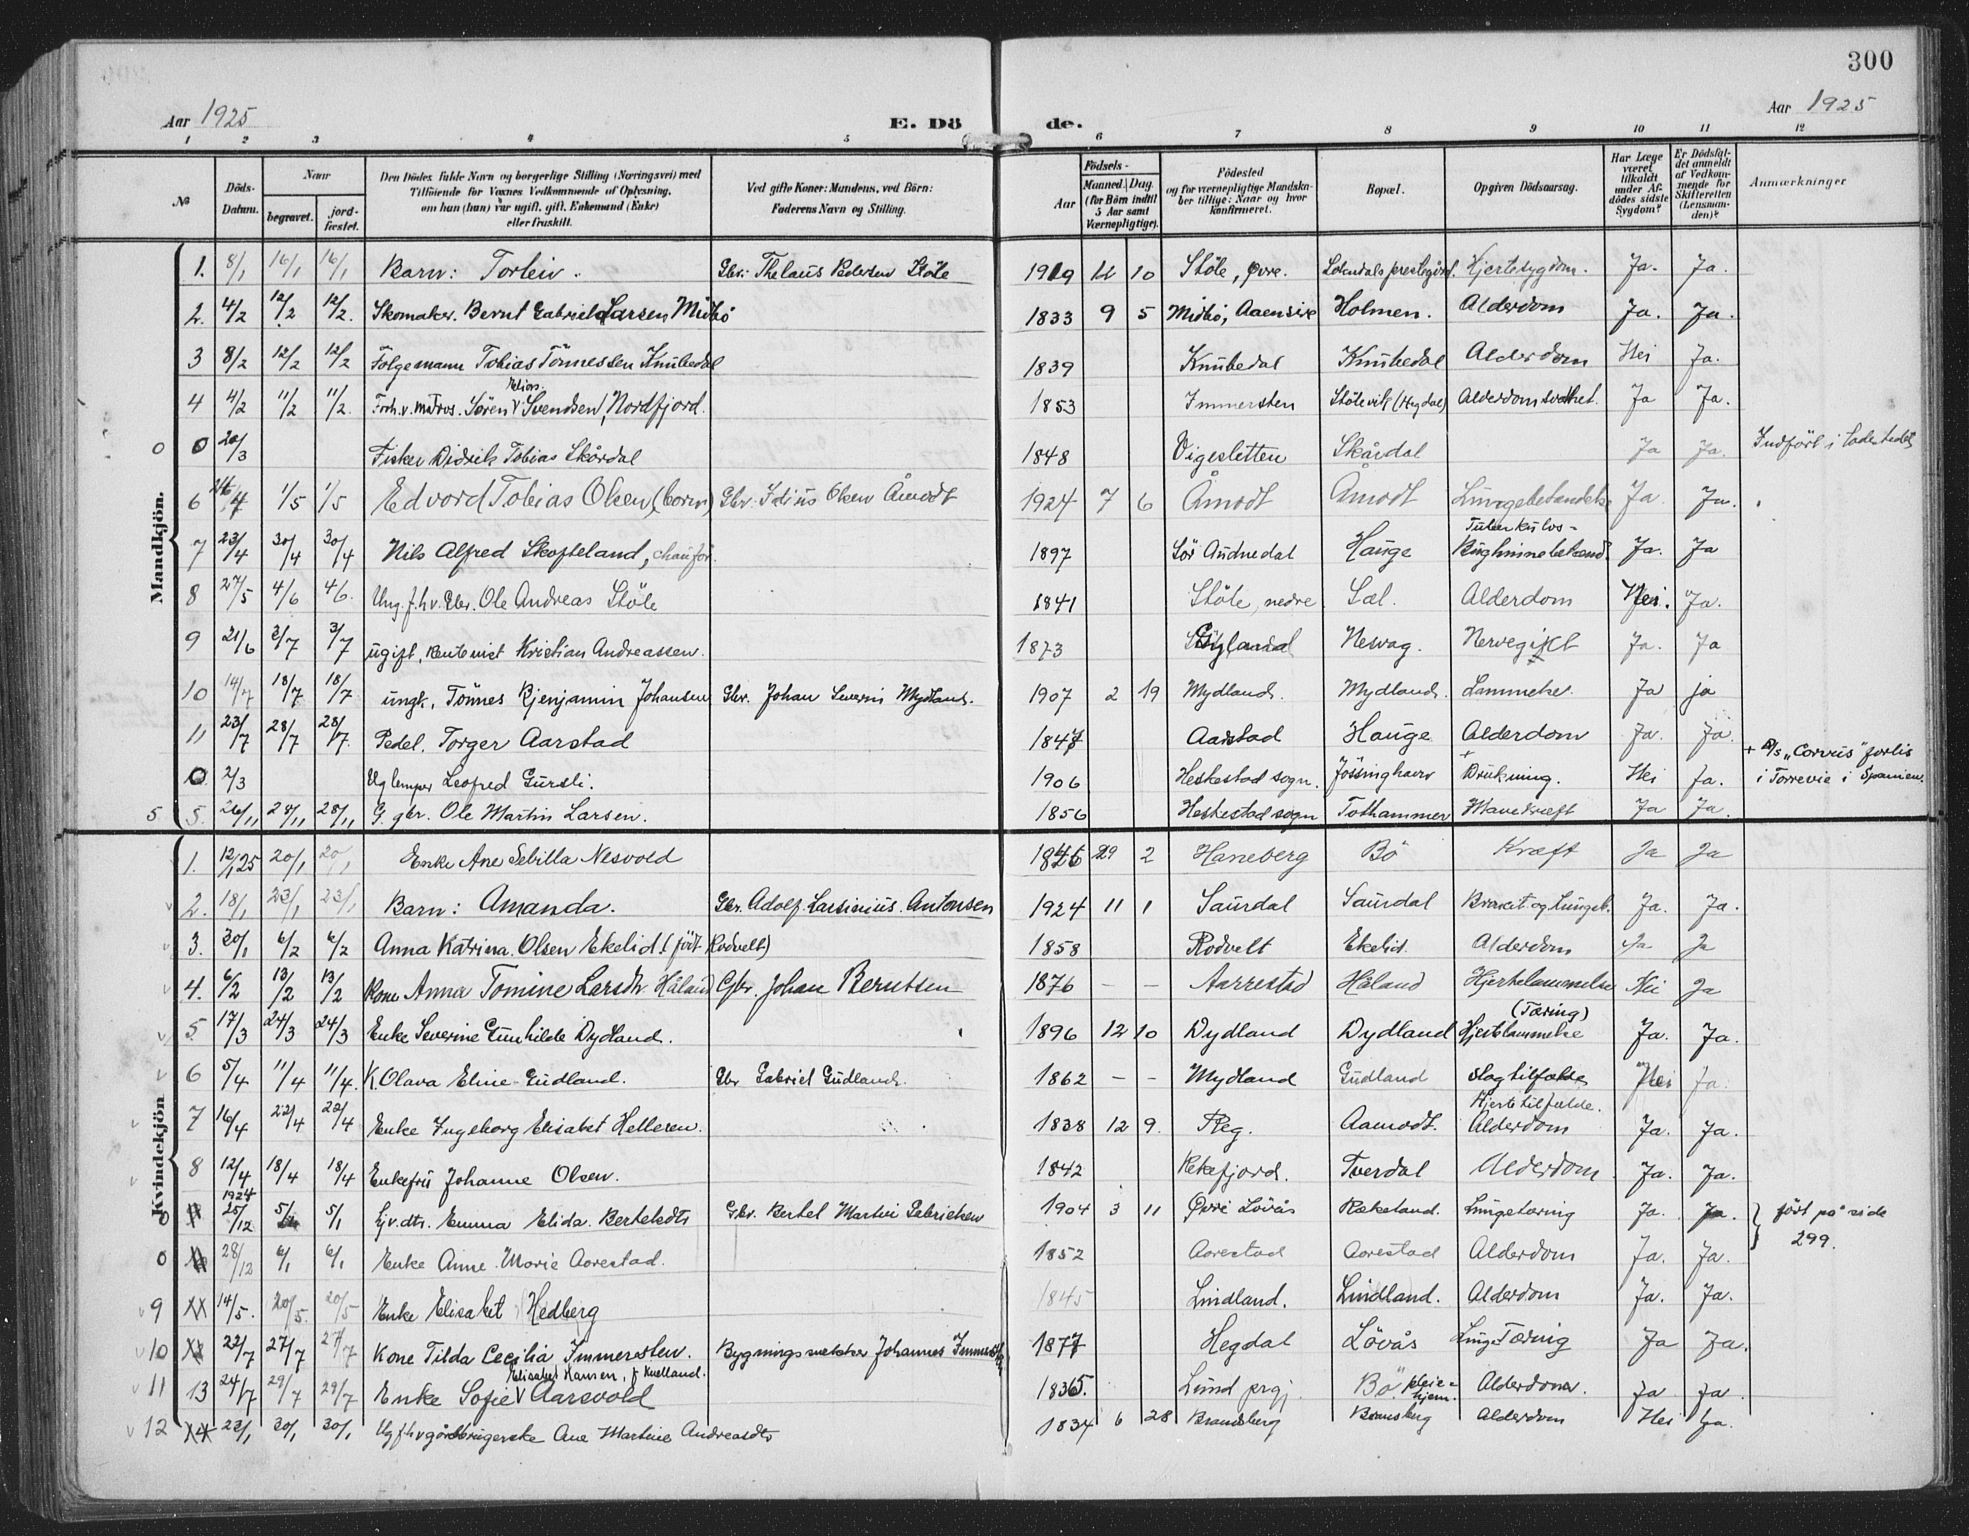 300
Aar 1925
E. Dö
de.
Aar 1925
1 2 3 4 5 6 7 8 9 10 11 12
№
Döds-Datum.
Naar
begravet.
jord-fæstet.
Den Dödes fulde Navn og borgerlige Stilling (Næringsvei) med
Tilföiende for Voxnes Vedkommende af Oplysning,
om han (hun) var ugift, gift, Enkemand (Enke)
eller fraskilt.
Ved gifte Koner: Mandens, ved Börn:
Faderens Navn og Stilling.
Födsels-
Aar
Maaned. Dag.
(for Börn indtil
5 Aar samt
Værnepligtige).
Födested
og for værnepligtige Mandska-
ber tillige: Naar og hvor
konfirmeret.
Bopæl.
Opgiven Dödsaarsag.
Har Læge
været
tilkaldt
under Af-
dödes sidste
Sygdom?
Er Dödsfal-
det anmeldt
af Vedkom-
mende for
Skifteretten
(Lensman-
den)?
Anmærkninger
Mandkjön.
1. 8/1 16/1 16/1 Barn: Torleiv. Gbr: Thelaus Pedersen Stöle 1919 11 10 Stöle, Øvre. Sokndals prestegård. Hjertesygdom. Ja. Ja.
2. 4/2 12/2 12/2. Skomaker. Bernt Gabriel Larsen Midbö 1833 9 5 Midbö, Aaensire Holmen. Alderdom Ja. Ja.
3 8/2 12/2 12/2 Folgemann Tobias Tönnessen Knubedal 1839 Knubedal Knubedal Alderdom Nei Ja.
4 4/2 11/2 11/2. Forh. v. matros. Sören Elias. Svendsen, Nordfjord. 1853 Immersten Stölevik (Hegdal) Alderdomsvakhet. Ja Ja.
0 0 20/3 Fisker Didrik Tobias Skårdal 1848 Vigesletten Skårdal Ja Ja. Indfört i
6 26/4 1/5 1/5 Edvard Tobias Olsen (barn) Gbr. Olsen Åmodt 1924 7 6 Åmodt Åmodt Lungebetændelse Ja Ja.
7 23/4 30/4 30/4 Nils Alfred Skofteland, chaufför. 1897 Sör Audnedal Hauge Tuberkulos- Bughinnebetænd. Ja. Ja
8 27/5 4/6 4/6. Ung. f.h.v. Gbr. Ole Andreas Stöle 1841 Stöle, nedre Sæl. Alderdom Nei. Ja.
9 21/6 3/7 3/7 ugift, Rentenist Kristian Andreassen. 1873 Gyland Nesvag. Nervegikt Ja. Ja
10 14/7 18/7 18/7 ungk., Tönnes Benjamin Johansen Gbr. Johan Severin Mydland. 1907 2 19 Mydland. Mydland. Lammelse. Ja ja
11 23/7 28/7 28/7. Pedel. Torger Aarstad 1847 Aarstad Hauge Alderdom Ja. Ja.
0 2/3 Ug lemper Leofred Gursli. 1906 Heskestad sogn. Jössinghavn + Drukning. Nei Ja. + D/S „Corvus" forlis
i Torrevie i Spanien.
5 5. 26/11 28/11 28/11 G. gbr. Ole Martin Larsen. 1856 Heskestad sogn Tothammer Mavekræft Ja Ja.
Kvindekjön
1. 12/1 25 20/1 20/1 Enke Ane Sebilla Nesvold 1846 29 2 Haneberg Bö Kræft Ja Ja
2. 18/1 23/1 23/1 Barn: Amanda. Gbr. Adolf Lassinius. Antonsen 1924 11 1 Saurdal Saurdal Ja. Ja.
3. 30/1 6/2 6/2 Anna Katrina Olsen Ekelid. (födt Rodvelt) 1858 Rodvelt Ekelid. Alderdom Ja Ja
4. 6/2 13/2 13/2 Kone Anna Tomine Larsdtr Håland Gbr. Johan Berntsen 1876 – – Aarrestad Håland Hjertelammelse Nei Ja
5 17/3 24/3 24/3 Enke Severine Gunhilde Dydland. 1896 12 10 Dydland Dydland (Tæring) Hjertelammelse Ja. Ja.
6 5/4 11/4 11/4. K. Olava Eline Gudland. Gbr Gabriel Gudland. 1862 – – Mydland Gudland Slagtilfælde Nei Ja.
7 16/4 22/4 22/4 Enke Ingeborg Elisabet Helleren. 1838 12 9. Reg. Aamodt. Hjertetilfælde. Alderdom Ja. Ja.
8 12/4 18/4 18/4 Enkefru Johanne Olsen. 1842 Rekefjord. Tverdal Alderdom Ja. Ja.
0 1924 25/12 5/1 5/1 Hjv. dtr. Emma Elida. Berteldtr Gbr. Bertel Martin Gabrielsen 1904 3 11 Øvre Lövås Rekeland. Lungetæring Ja. Ja. } fört på side
299.
0 28/12 6/1 6/1 Enke Anne Marie Aarestad. 1852 Aarestad Aarestad Alderdom Ja. Ja.
9 14/5. 20/5. 20/5 Enke Elisabet Hedberg 1845 Lindland. Lindland. Alderdom Ja. Ja.
10 22/7 27/7 27/7 Kone Tilda Cecilia Immersten. Bygningsmester Johannes Immersten 1877 Hegdal Lövås Lunge Tæring Ja Ja.
11 13 24/7 29/7 29/7 Enke Sofie Elisabet Hansen, f. Kvelland. Aarsvold 1835. Lund prgj. Bö pleie-hjem. Alderdom. Ja Ja.
12 23/1 30/1 30/1 Ug fhv gårdbrugerske Ane Martine Andreasdtr 1834 6 28 Bransberg Bransberg Alderdom Nei Ja.